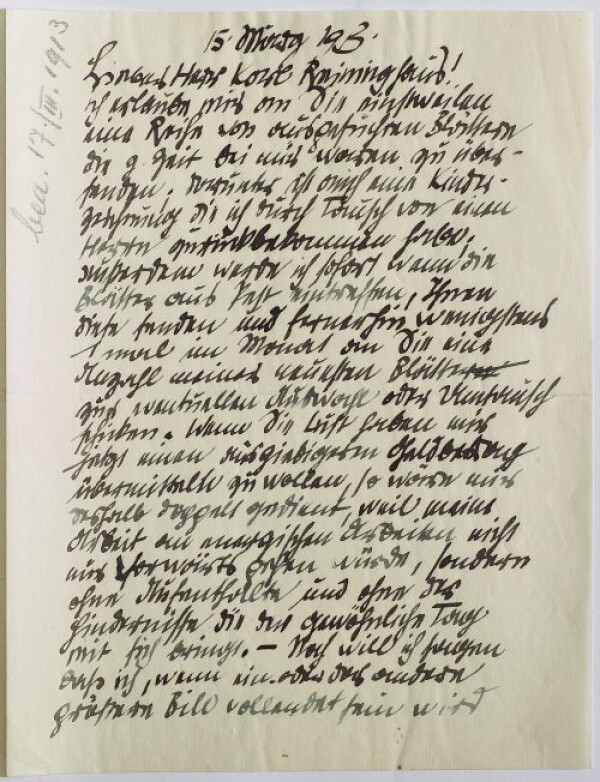 15. März 1913.
bea. 17./III. 1913
Lieber Herr Karl Reininghaus!
ich erlaube mir an Sie einstweilen
eine Reihe von ausgesuchten Blättern
die z. Zeit bei mir waren zu über-
senden. darunter ist auch eine Kinder-
zeichnung die ich durch Tausch von einem
Herrn zurückbekommen habe.
außerdem werde ich sofort wenn die
Blätter aus Pest eintreffen, Ihnen
diese senden und fernerhin wenigstens
1 mal im Monat an Sie eine
Anzahl meiner neuesten Blätter
zur eventuellen Auswahl oder Umtausch
schicken. Wenn Sie Lust haben mir
jetzt einen ausgiebigeren Geldbetrag
übermitteln zu wollen, so wäre mir
deshalb doppelt gedient, weil meine
Arbeit an energischen Arbeiten nicht
nur vorwärts gehen würde, sondern
ohne Aufenthalte und ohne der
Hindernisse die der gewöhnliche Tag
mit sich bringt. – Noch will ich sagen
daß ich, wenn ein oder das andere
größere Bild vollendet sein wird